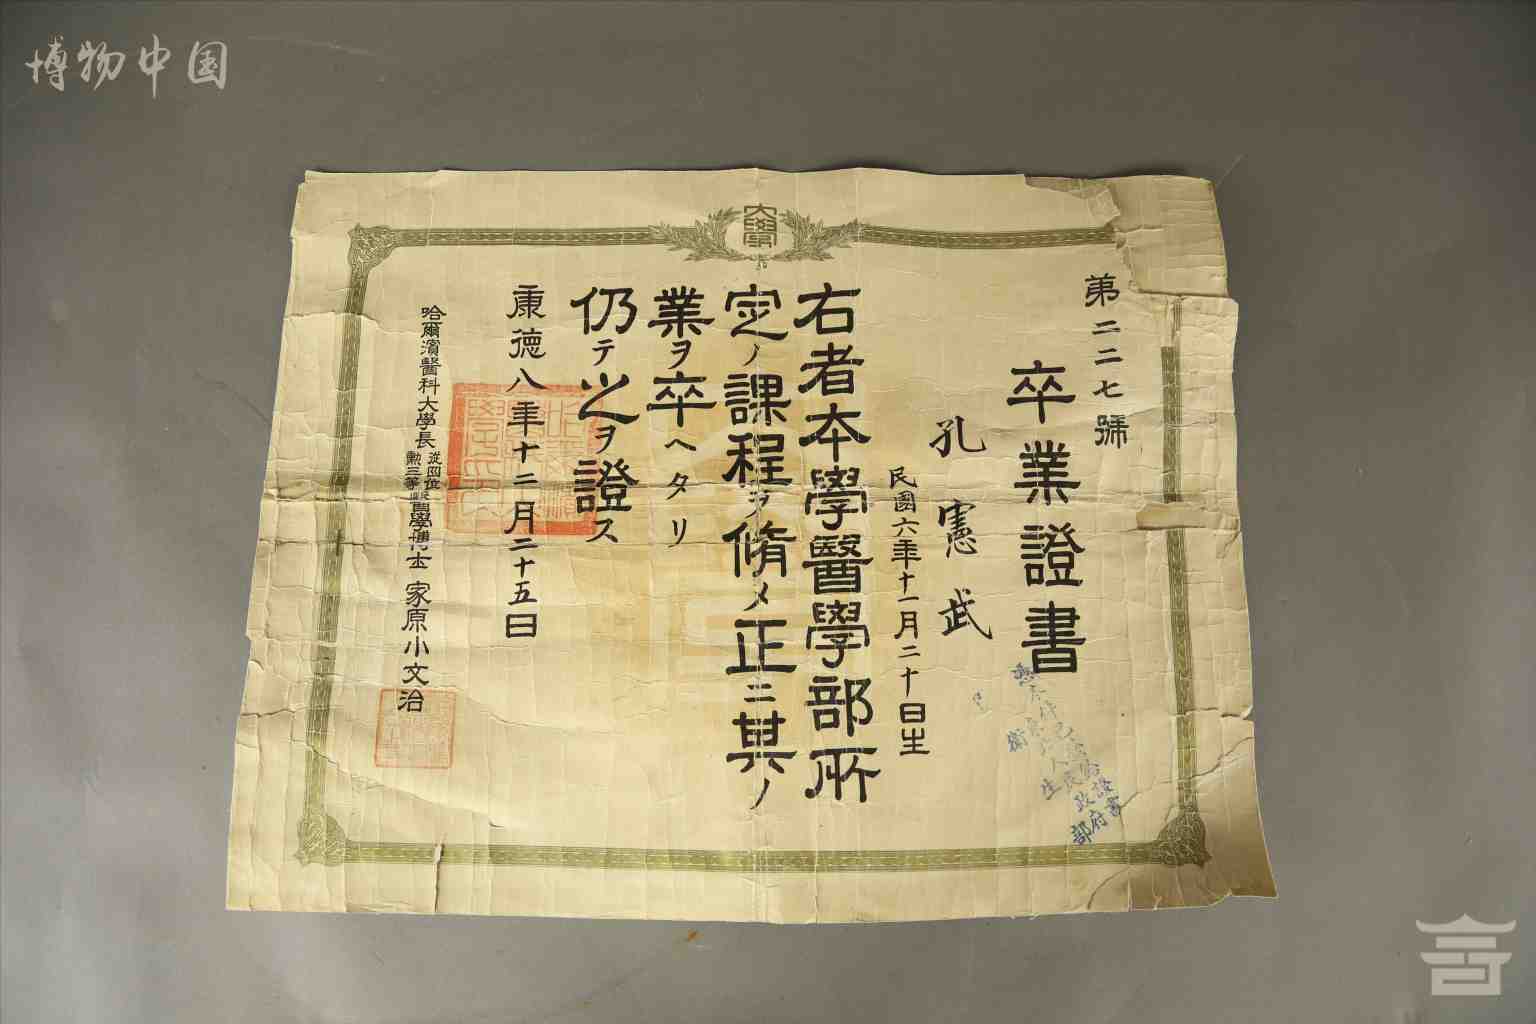 博物中国
大學
第二二七號
卒業證書
孔憲武
民國六年十一月二十日生
右者本學醫學部所
定ノ課程ヲ脩メ正ニ其ノ
業ヲ卒ヘタリ
仍テ之ヲ證ス
康德八年十二月二十五日
哈爾濱醫科大學長 從四位勳三等醫學博士 家原小文治